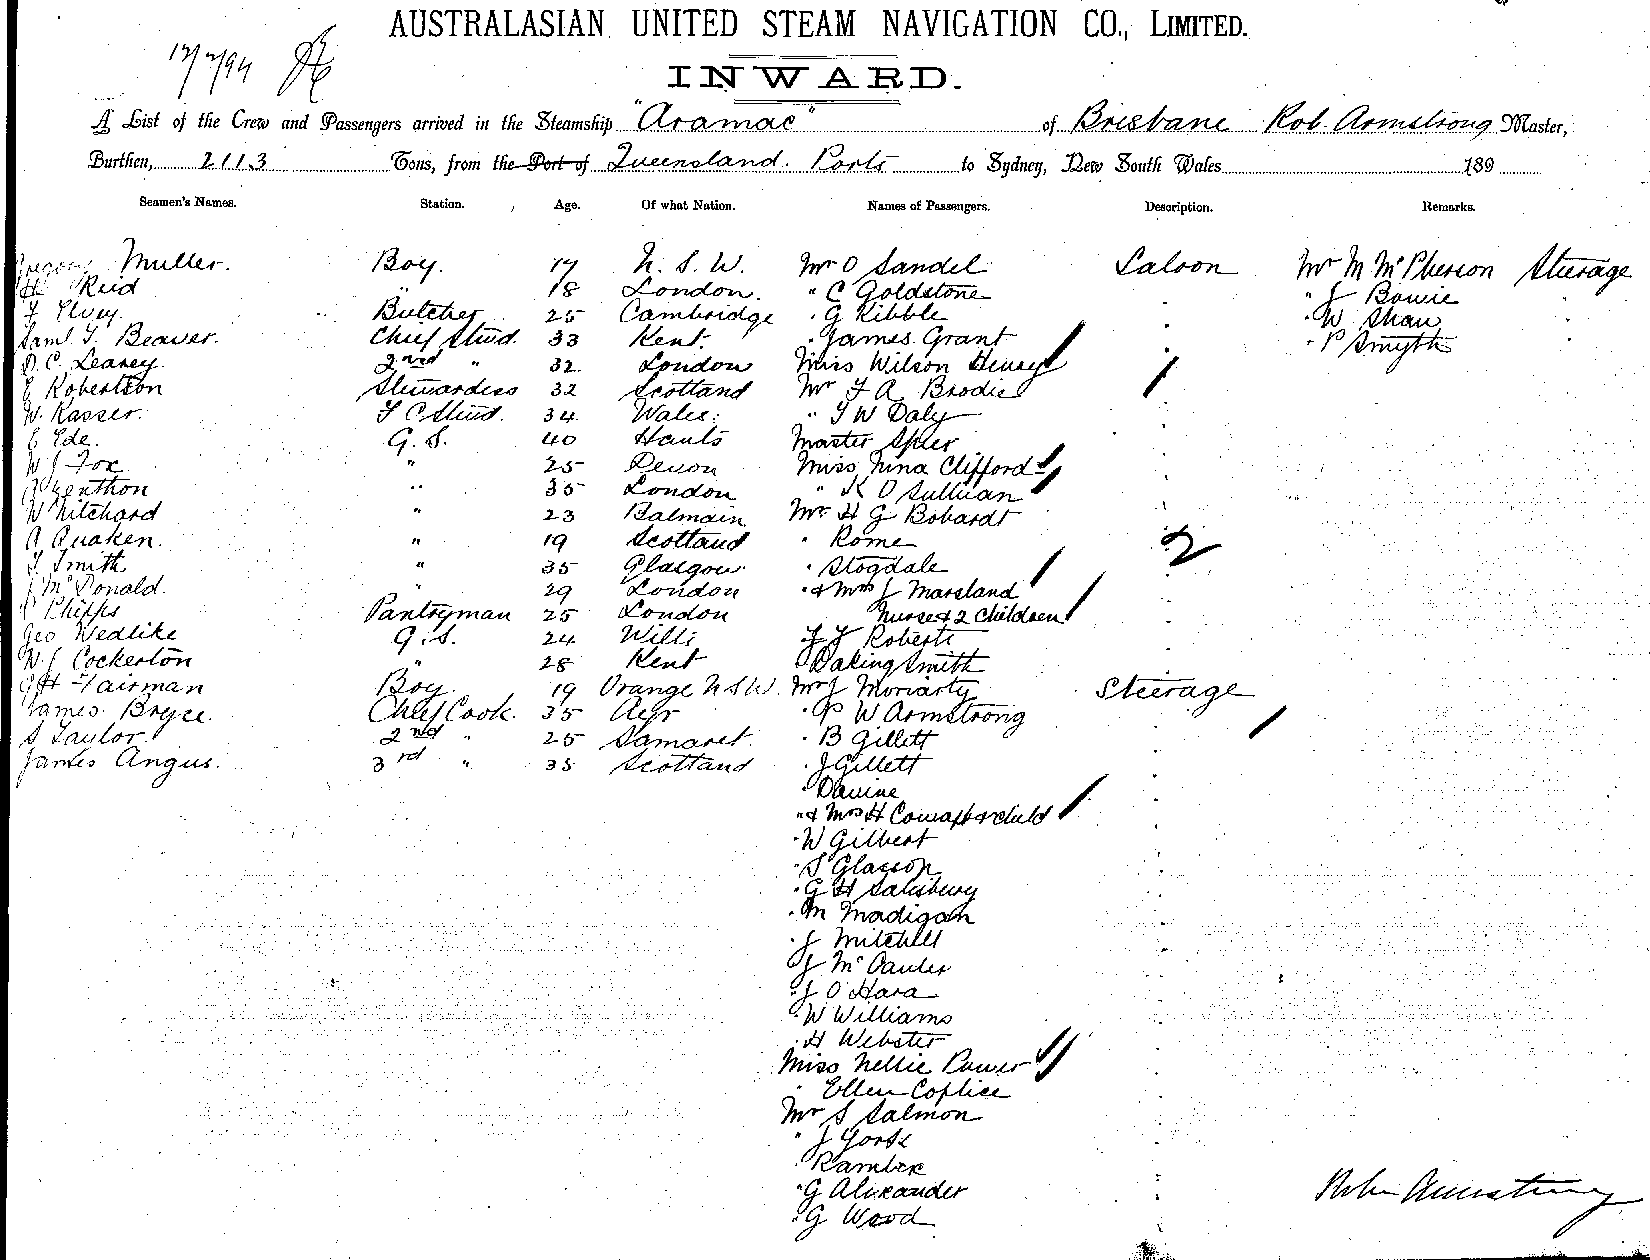 AUSTRALASIAN UNITED STEAM NAVIGATION CO., LIMITED.
INWARD.
A List of the Crew and Passengers arrived in the Steamship "Aramac" of Brisbane Rob. Armstrong Master,
Burthen, 2113 Tons, from the Port of Queensland. Ports to Sydney, New South Wales 189
Seamen's Names. Station. Age. Of what Nation. Names of Passengers. Description. Remarks.
Muller. Boy. 17 N. S. W. Mr O Sandel Saloon Mr M McPherson Steerage
H Reid " 18 London. " C Goldstone " J Bowie
Butcher 25 Cambridge " G Kibble " W Shaw
Saml. T. Beaver. Chief Stwd. 33 Kent. " James Grant " P Smyth
D. C. Leaney. 2nd " 32 London Miss Wilson Henry
E Robertson Stewardess 32 Scotland Mr F A Brodie
W. Rasser. F C Stwd. 34 Wales. " T W Daly
E Ede. G. S. 40 Hants Master Spier
W J Fox " 25 Devon Miss Nina Clifford
" 35 London " K O Sullivan
W Pitchard " 23 Balmain Mr H G Bobardt
A Quaken. " 19 Scotland " Rome
T Smith " 35 Glasgow " Stogdale
J McDonald. " 29 London " & Mrs J Marsland
Phipps Pantryman 25 London Nurse & 2 Children
Geo Wedlike G. S. 24 Wilts F J Roberts
W. J Cockerton " 28 Kent Daking Smith
G H Fairman Boy. 19 Orange N S W. Mr J Moriarty Steerage
James Bryce. Chief Cook. 35 Ayr " P W Armstrong
S Taylor. 2nd " 25 Samaret. " B Gillett
James Angus. 3rd " 35 Scotland " J Gillett
" Davine
" & Mrs H & child
" W Gilbert
" S Glasson
" G H Salisbury
" M Madigan
" J Mitchell
" J McCauler
" J O'Hara
" W Williams
" H Webster
Miss Nellie Power
" Ellen Coplice
Mr S Salmon
" J
" Ramber
" G Alexander
" G Wood